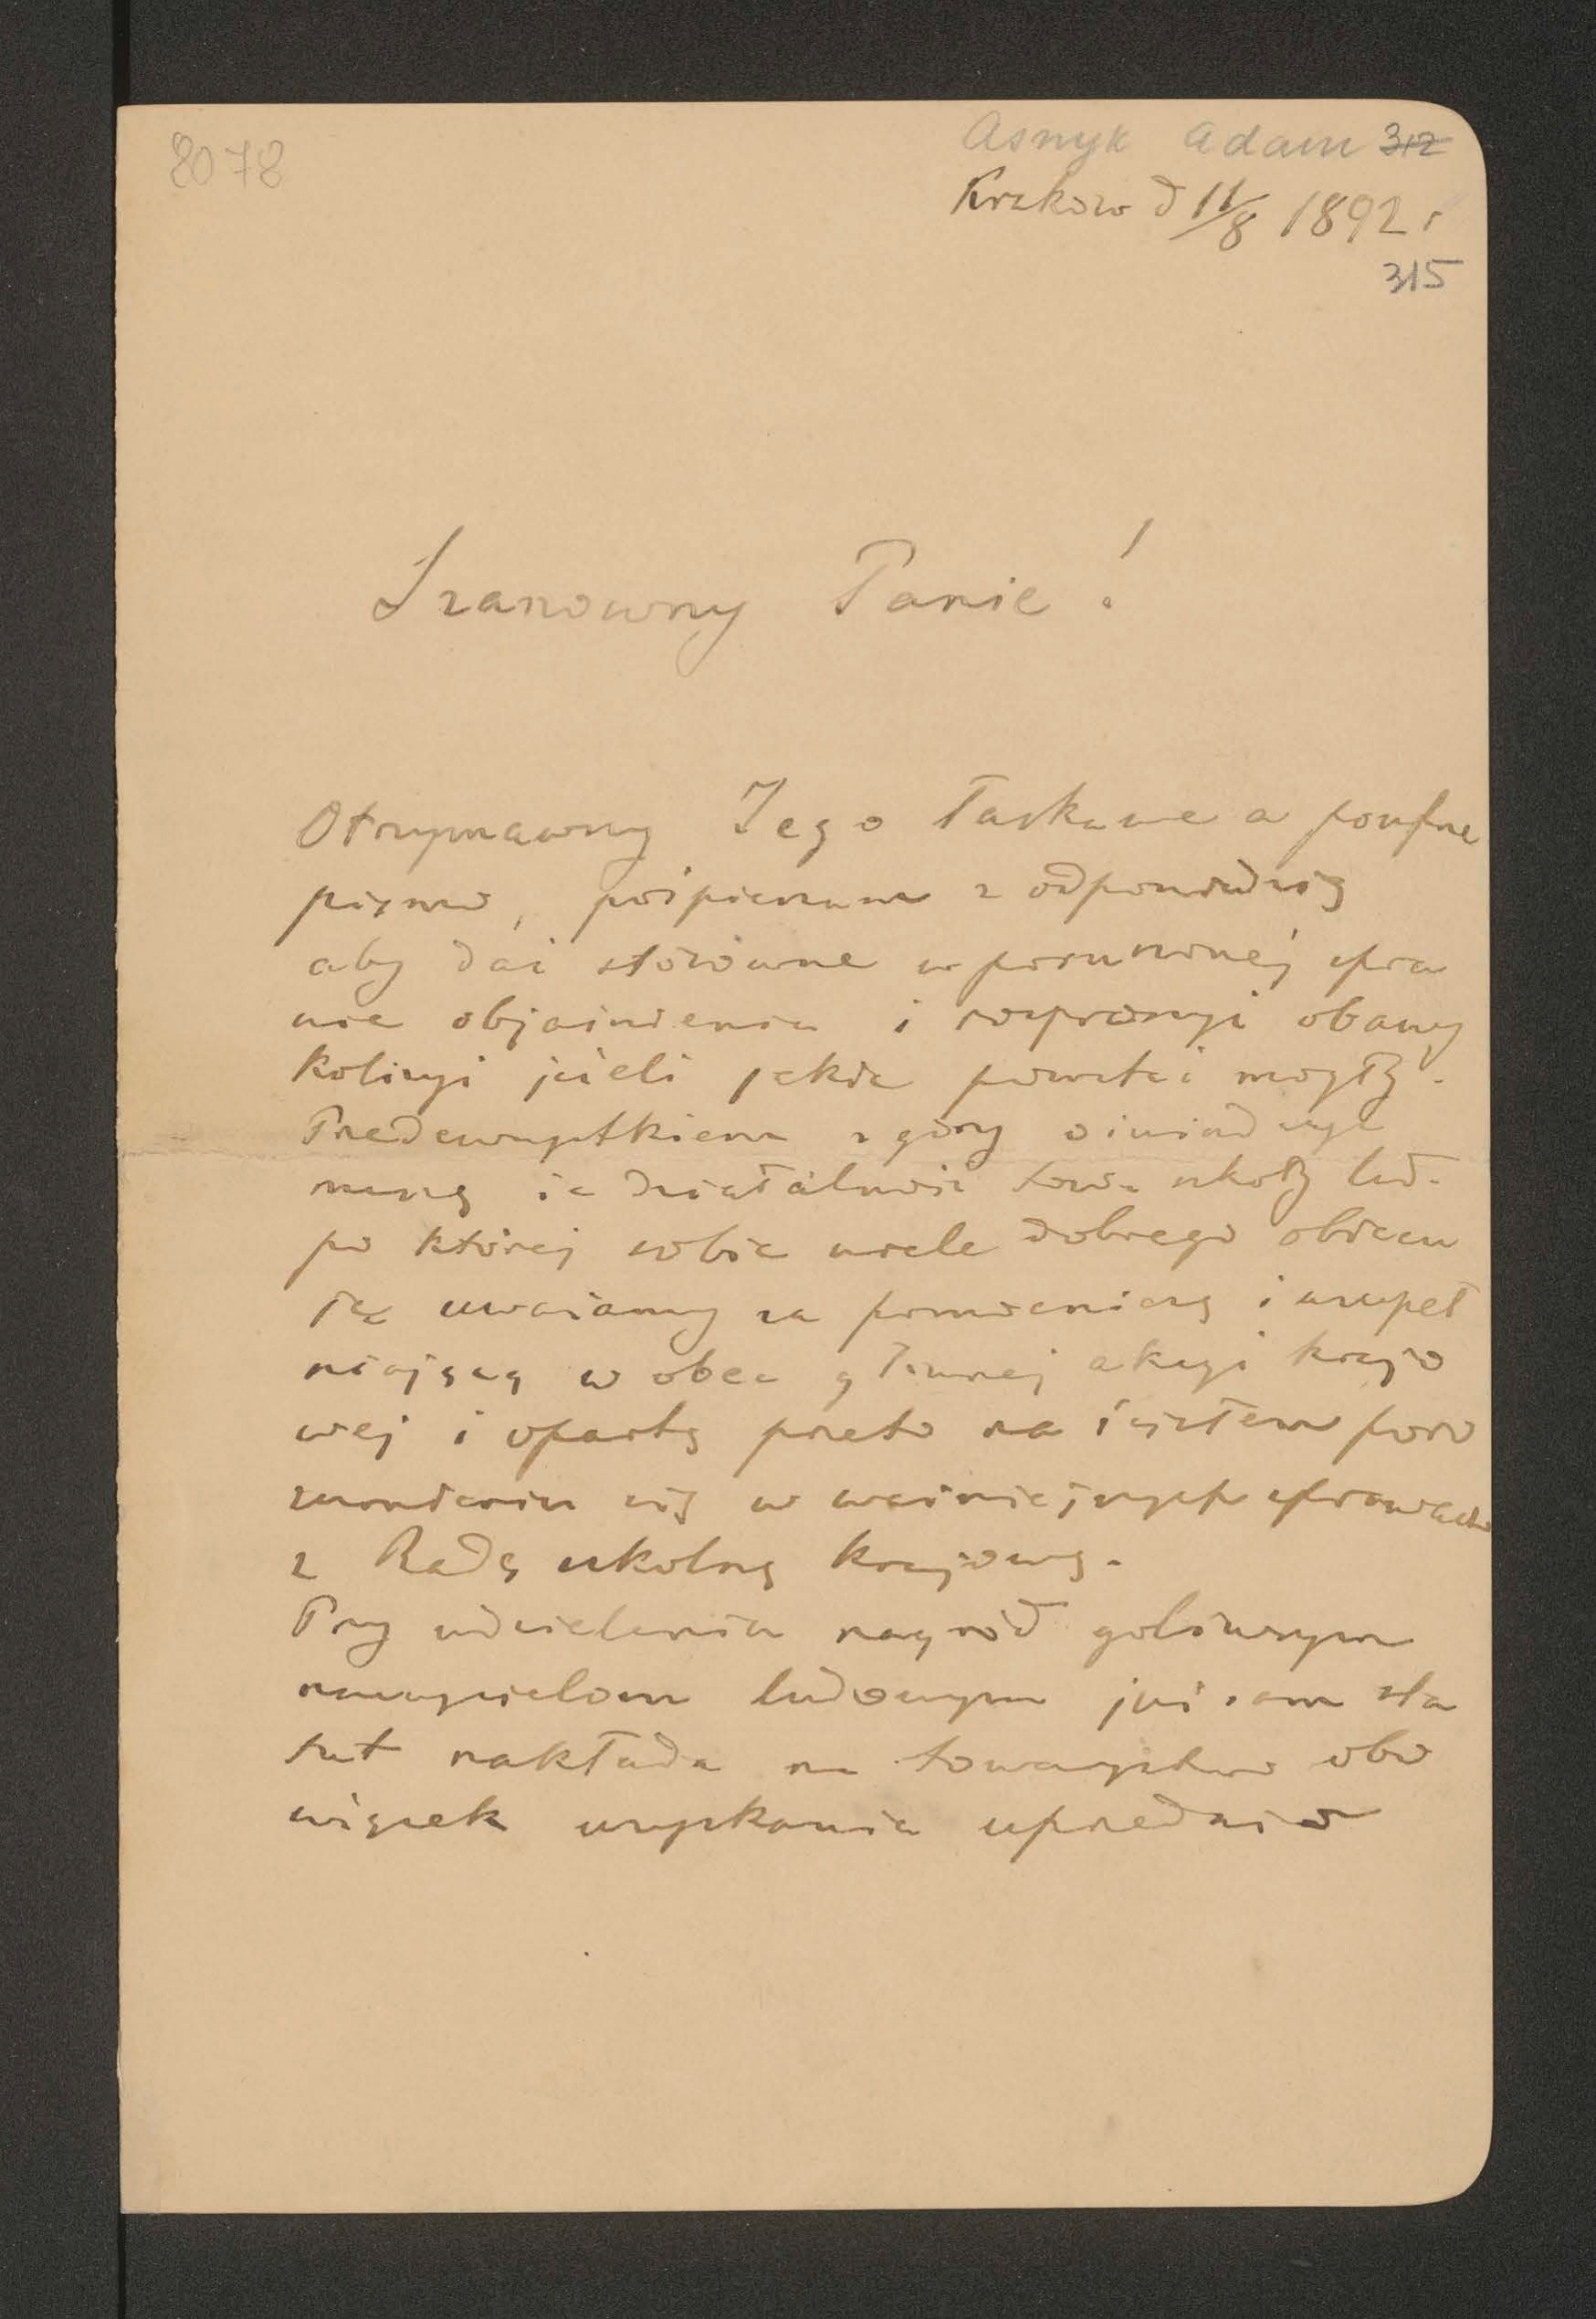 8078
Asnyk Adam 312
Kraków d 11/8 1892 r
315
Szanowny Panie!
Otrzymawszy Jego łaskawe a poufne
pismo, pośpieszam z odpowiedzią
aby dać stosowne w poruszonej spra
wie objaśnienia i rozproszyć obawy
kolizyi jeżeli jakie powstać mogły.
Przedewszystkiem z góry oświadczyć
muszę że działalność tow. szkoły lud.
po której sobie wiele dobrego obiecu
ję uważamy za pomocniczą i uzupeł
niającą wobec głównej akcyi krajo
wej i opartą przeto na ścisłem poro
zumieniu się w ważniejszych sprawach
z Radą szkolną krajową.
Przy udzielaniu nagród gorliwym
nauczycielom ludowym już sam sta
tut nakłada na towarzystwo obo
wiązek uzyskania uprzednio